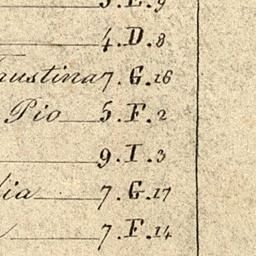 4.D.8
Faustina 7.G.16
Pio 5.F.2
9.I.3
7.G.17
7.F.14